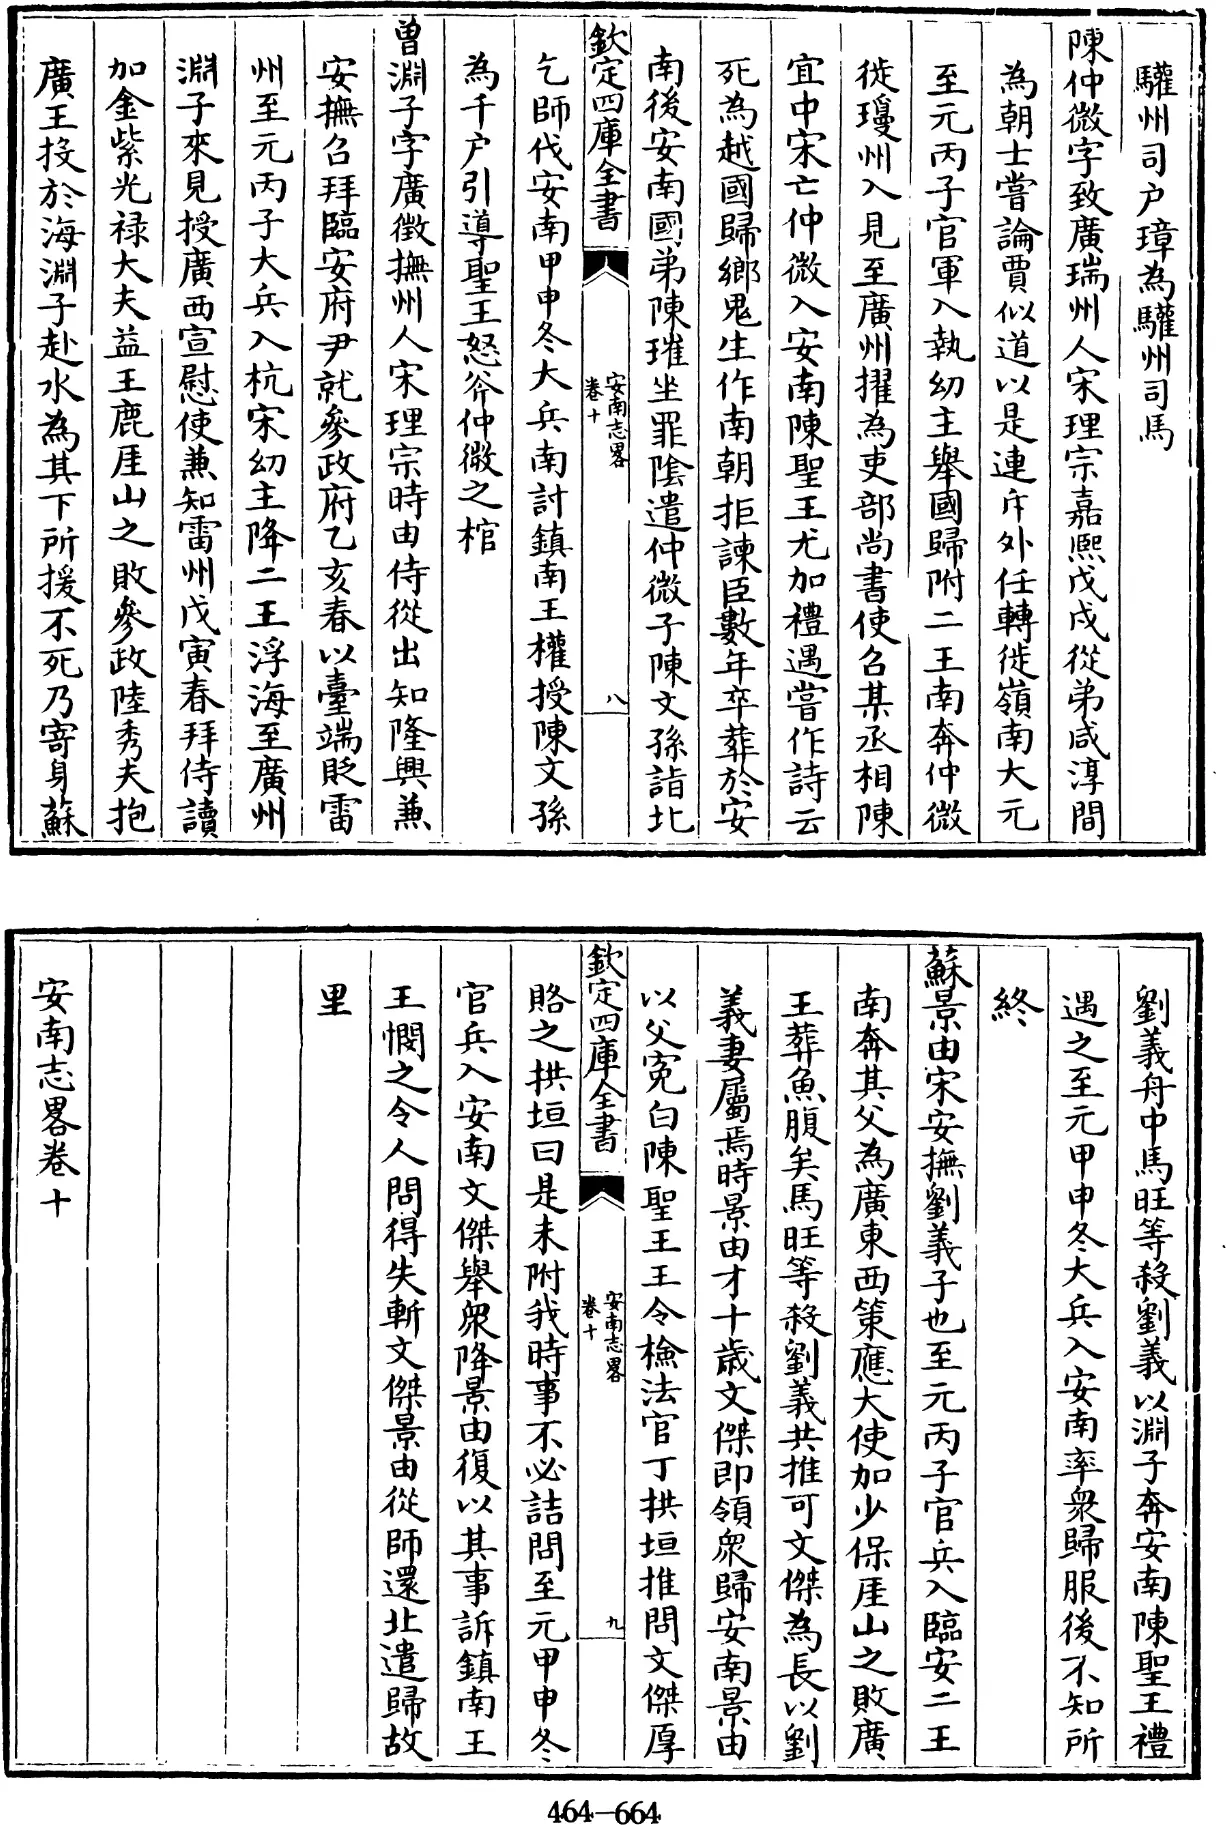 驩州司户璋為驩州司馬
陳仲微字致廣瑞州人宋理宗嘉熙戊戌從弟咸淳間
為朝士嘗論賈似道以是連斥外任轉徙嶺南大元
至元丙子官軍入執幼主舉國歸附二王南奔仲微
徙瓊州入見至廣州擢為吏部尚書使召某丞相陳
宜中宋亡仲微入安南陳聖王尤加禮遇嘗作詩云
死為越國歸鄉鬼生作南朝拒諫臣數年卒葬於安
南後安南國弟陳璀坐罪陰遣仲微子陳文孫詣北
欽定四庫全書
安南志畧
卷十
八
乞師伐安南甲申冬大兵南討鎮南王權授陳文孫
為千户引導聖王怒斧仲微之棺
曾淵子字廣徵撫州人宋理宗時由侍從出知隆興兼
安撫召拜臨安府尹就參政府乙亥春以臺端貶雷
州至元丙子大兵入杭宋幼主降二王浮海至廣州
淵子來見授廣西宣慰使兼知雷州戊寅春拜侍讀
加金紫光禄大夫益王鹿厓山之敗參政陸秀夫抱
廣王投於海淵子赴水為其下所援不死乃寄身蘇
劉義舟中馬旺等殺劉義以淵子奔安南陳聖王禮
遇之至元甲申冬大兵入安南率衆歸服後不知所
終
蘇景由宋安撫劉義子也至元丙子官兵入臨安二王
南奔其父為廣東西策應大使加少保厓山之敗廣
王葬魚腹矣馬旺等殺劉義共推可文傑為長以劉
義妻屬焉時景由才十歲文傑即領衆歸安南景由
以父寃白陳聖王王令檢法官丁拱垣推問文傑厚
欽定四庫全書
安南志畧
卷十
九
賂之拱垣曰是未附我時事不必詰問至元甲申冬
官兵入安南文傑舉衆降景由復以其事訴鎮南王
王憫之令人問得失斬文傑景由從師還北遣歸故
里
安南志畧卷十
464-664